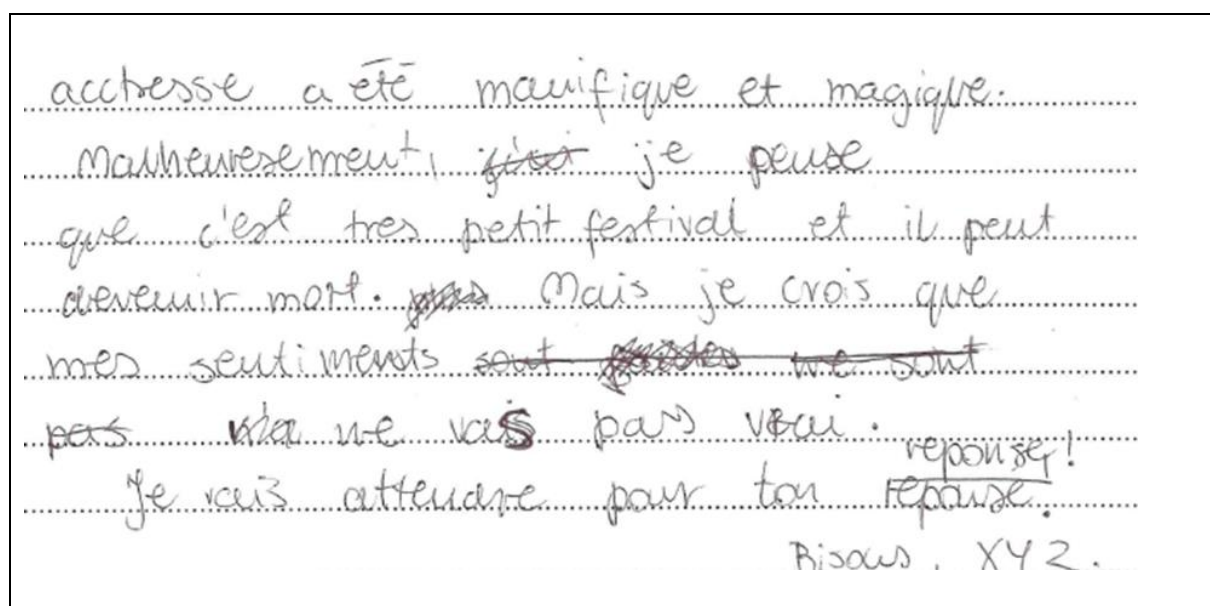 acctresse a été manifique et magique.
Malheuresement, j'ai je pense
que c'est tres petit festival et il peut
devenir mort. Mais je crois que
mes sentiments sont ne sont
pas ne vais pas vrai.
reponse!
Je vais attendre pour ton reponse.
Bisous, XYZ.